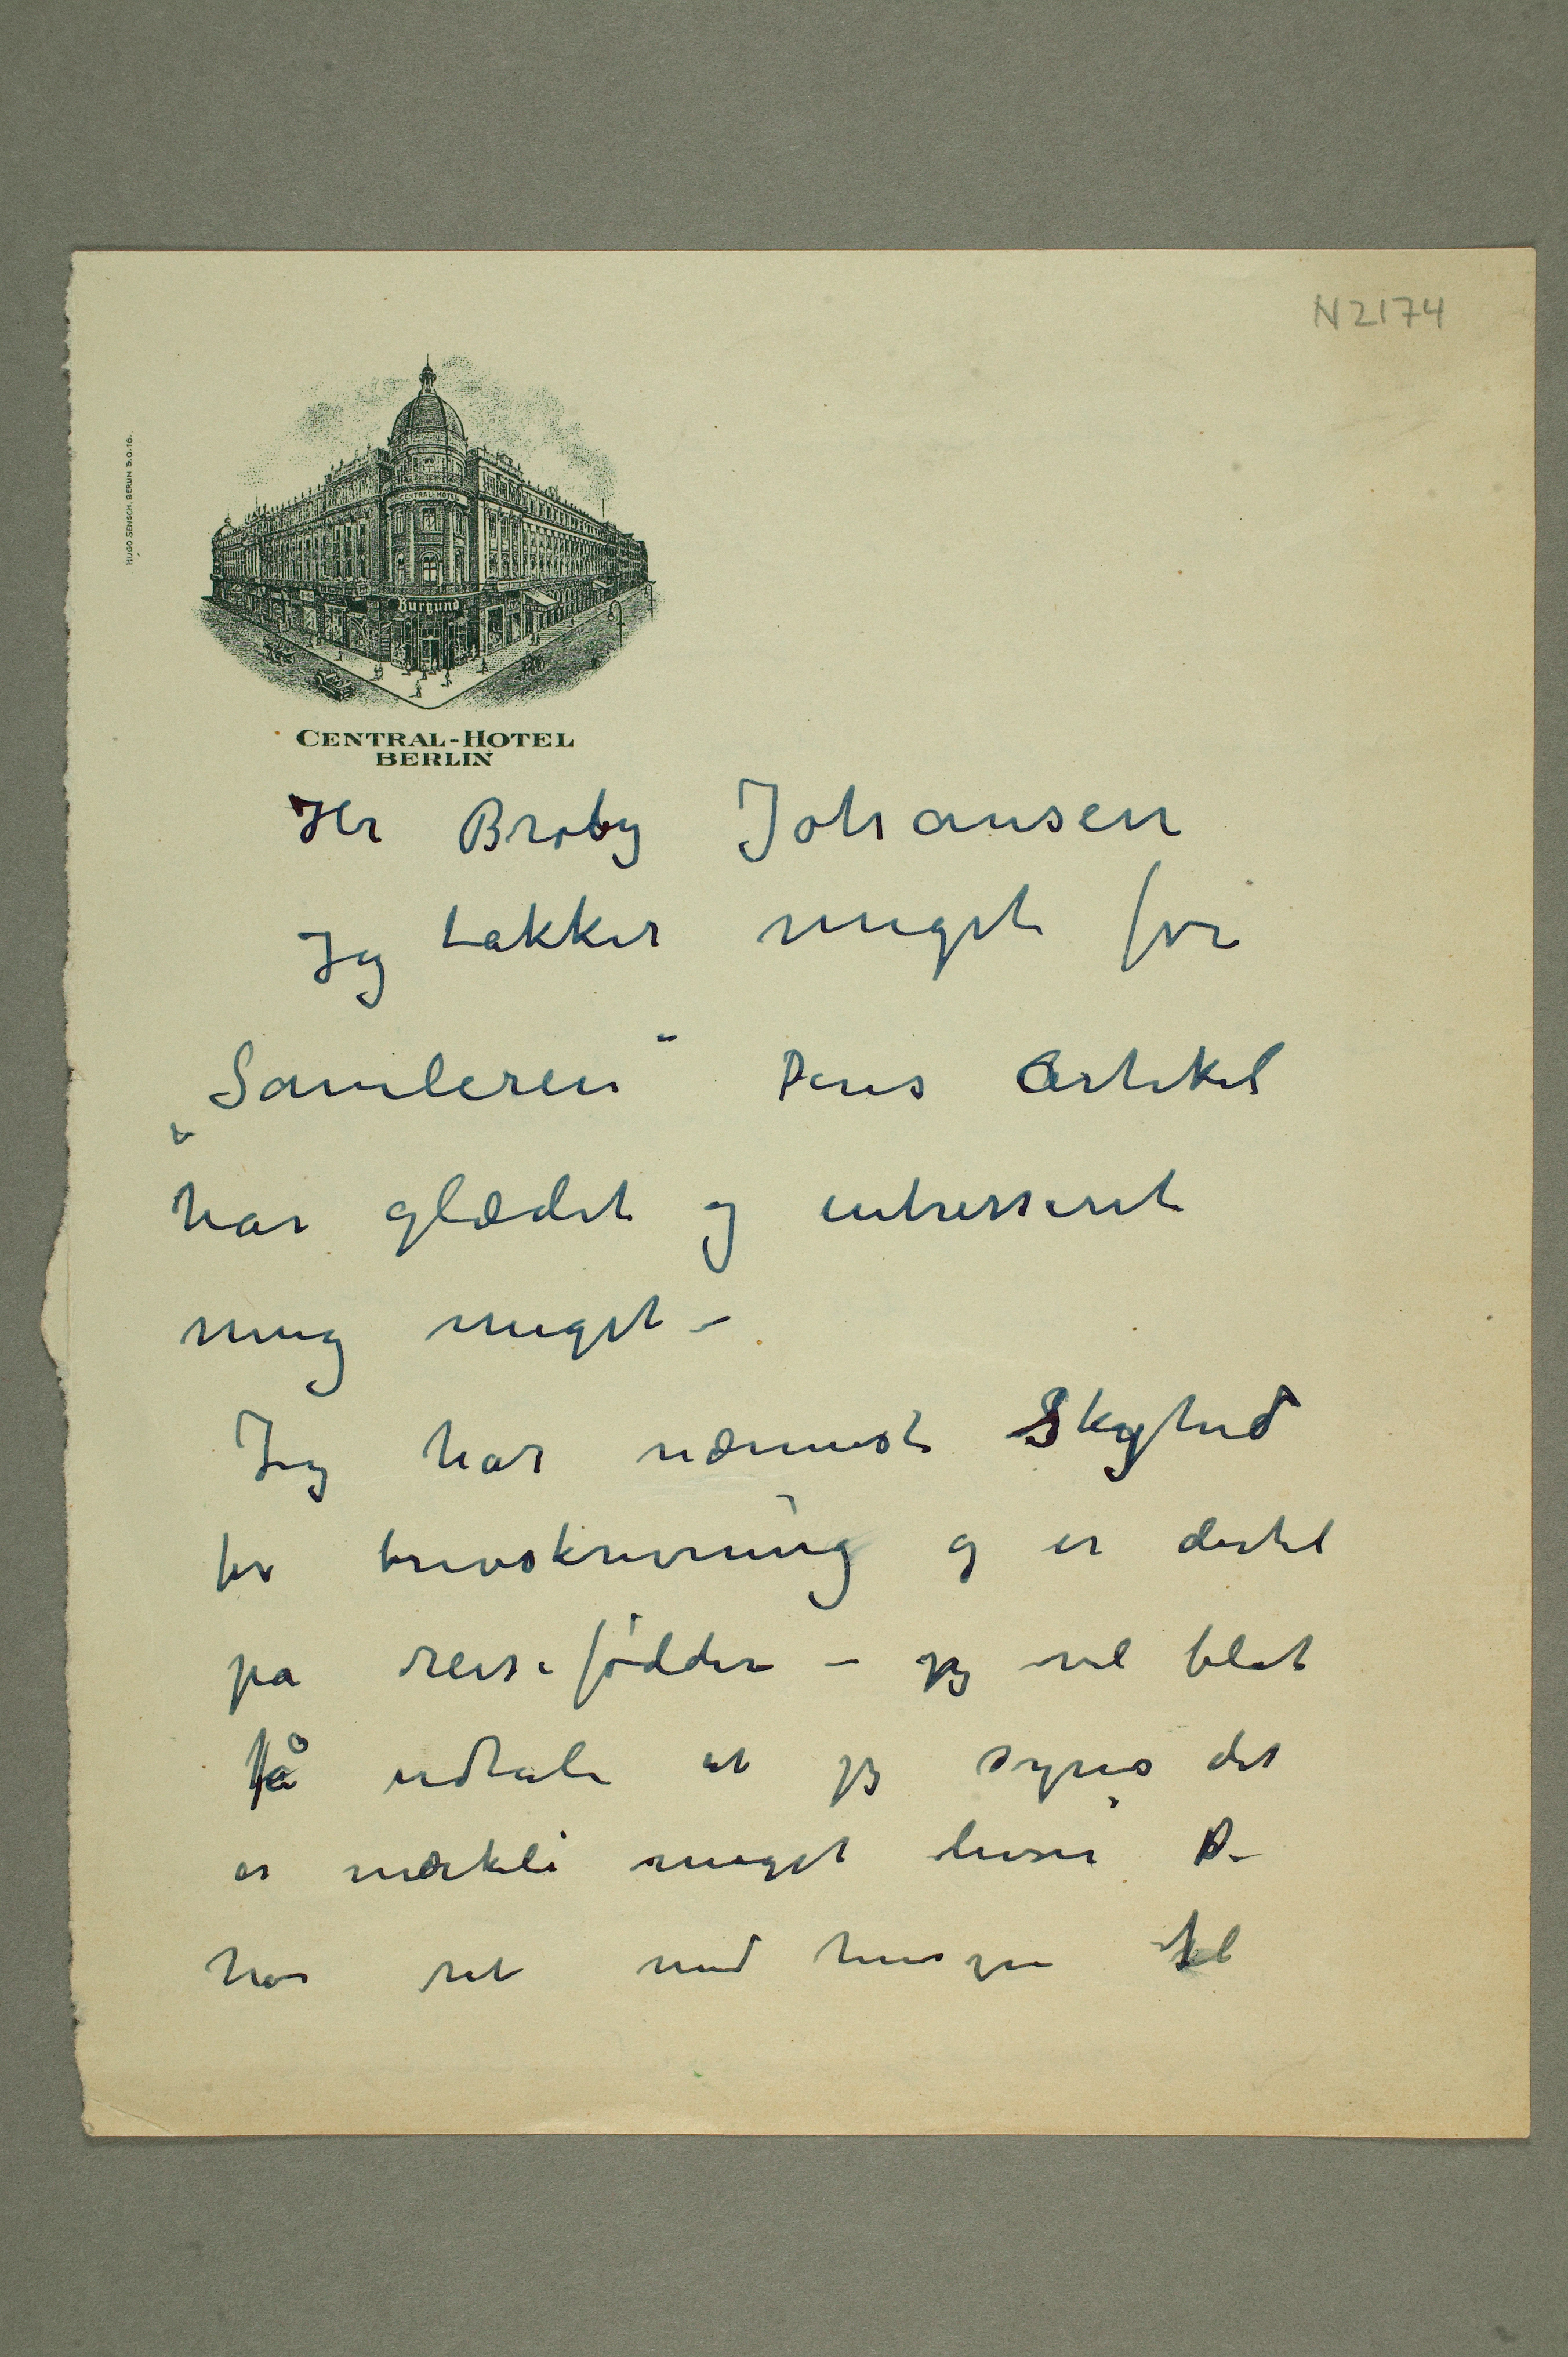 N 2174
HUGO SENSCH, BERLIN S.O.16.
CENTRAL-HOTEL
Burgund
CENTRAL-HOTEL
BERLIN
Hr Broby Johansen
Jeg takker meget for
„Samleren“ Deres Artikel
har glædet og intresseret
mig meget –
Jeg har nærmest Skyhed
for brevskrivning og er dertil
på reisefødder – jeg vil blot
få udtale at jeg synes det
er mærkeli meget hvori De
har ret med hensyn til